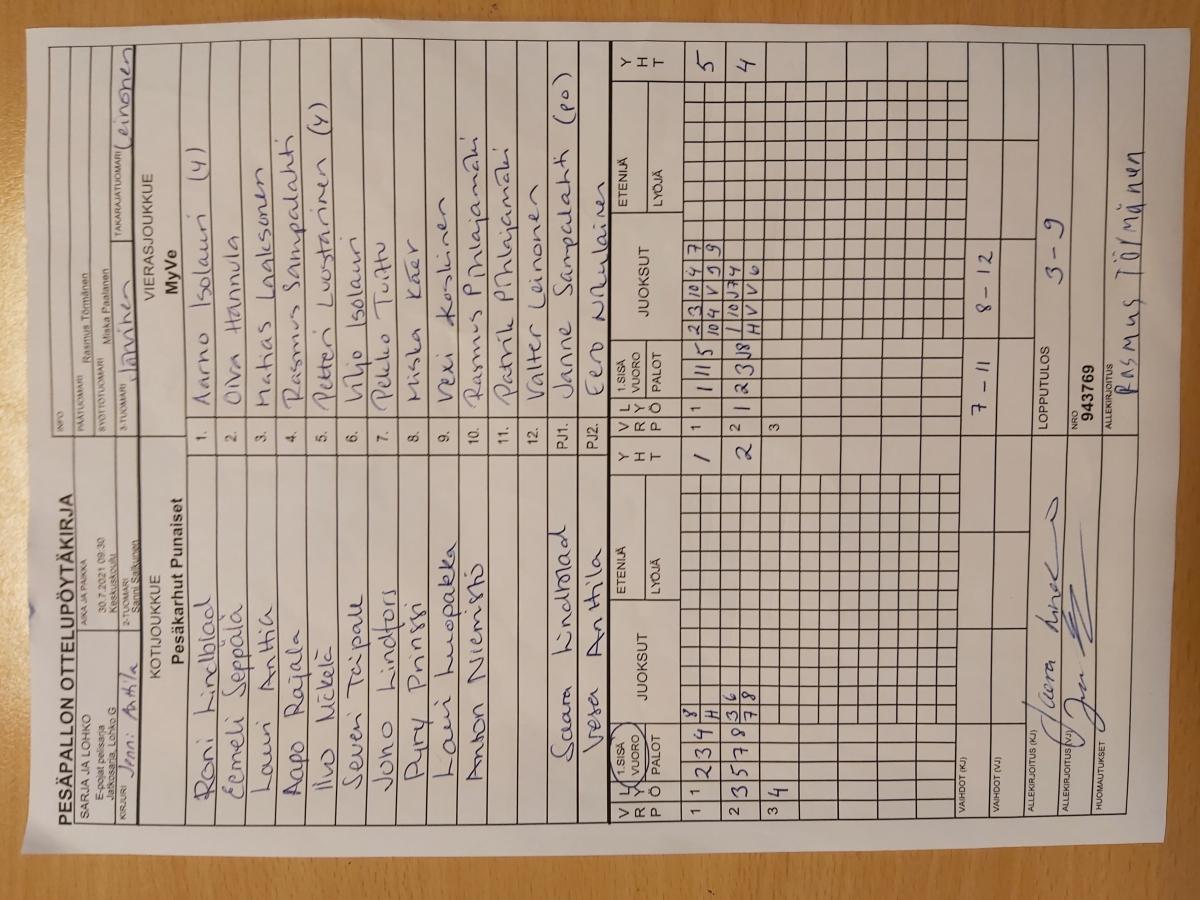 PESÄPALLON OTTELUPÖYTÄKIRJA
INFO
SARJA JA LOHKO
E-pojat pelisarja
Jatkosarja, Lohko G
AIKA JA PAIKKA
30.7.2021 09:30
Keskuskoulu
PÄÄTUOMARI
Rasmus Törmänen
SYÖTTÖTUOMARI
Miska Paalanen
KIRJURI Jenni Anttila
2-TUOMARI
Sanni Salkunen
3-TUOMARI Järvinen
TAKARAJATUOMARI Leinonen
KOTIJOUKKUE
Pesäkarhut Punaiset
VIERASJOUKKUE
MyVe
Roni Lindblad 1. Aarno Isolauri (4)
Eemeli Seppälä 2. Oiva Hannula
Lauri Anttila 3. Matias Laaksonen
Aapo Rajala 4. Rasmus Sampalahti
Iivo Mikelä 5. Petteri Luostarinen (4)
Severi Taipale 6. Viljo Isolauri
Joho Lindfors 7. Pekko Tuittu
Pyry Prinssi 8. Miska Käer
Lauri Luopakka 9. Vexi Koskinen
Anton Niemistö 10. Rasmus Pihlajamäki
11. Patrik Pihlajamäki
12. Valter Leinonen
Saara Lindblad PJ1. Janne Sampalahti (po)
Vesa Anttila PJ2. Eero Nikulainen
V R P L Y Ö 1.SISÄ VUORO PALOT JUOKSUT ETENIJÄ LYÖJÄ Y H T
V R P L Y Ö 1.SISÄ VUORO PALOT JUOKSUT ETENIJÄ LYÖJÄ Y H T
1 1 2 3 4 8 H 1
1 1 1 11 5 2 3 10 4 7 10 4 V 9 9 5
2 3 5 7 8 3 6 7 8 2
2 1 2 3 J8 1 10 J7 4 H V V 6 4
3 4
3
VAIHDOT (KJ) 7-11
VAIHDOT (VJ) 8-12
ALLEKIRJOITUS (KJ)
LOPPUTULOS 3-9
ALLEKIRJOITUS (VJ)
NRO
943769
HUOMAUTUKSET
ALLEKIRJOITUS
RASMUS TÖRMÄNEN